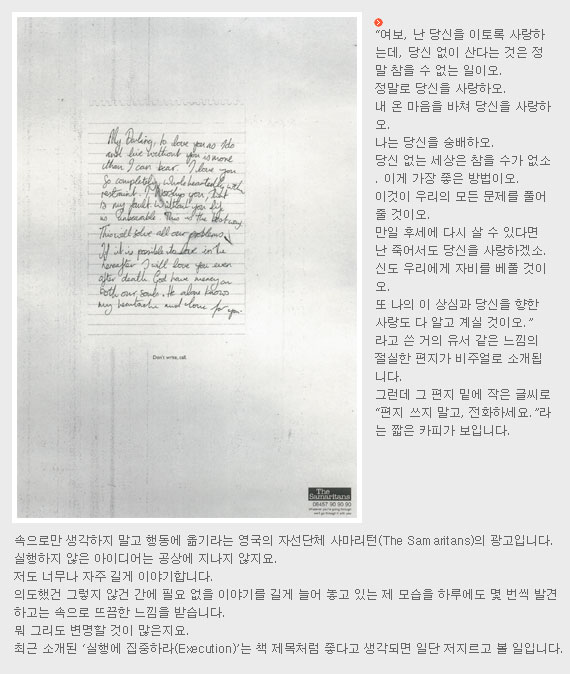 My Darling, to love you as I do
and live without you is more
than I can bear. I love you
so completely, wholeheartedly without
restraint. I worship you, that
is my fault. Without you life
is unbearable. This is the best way
This will solve all our problems.
If it is possible to love in the
hereafter I will love you even
after death. God have mercy on
both our souls. He alone knows
my heartache and love for you.
Don't write, call.
The
Samaritans
08457 90 90 90
“여보, 난 당신을 이토록 사랑하
는데, 당신 없이 산다는 것은 정
말 참을 수 없는 일이오.
정말로 당신을 사랑하오.
내 온 마음을 바쳐 당신을 사랑하
오.
나는 당신을 숭배하오.
당신 없는 세상은 참을 수가 없소
. 이게 가장 좋은 방법이오.
이것이 우리의 모든 문제를 풀어
줄 것이오.
만일 후세에 다시 살 수 있다면
난 죽어서도 당신을 사랑하겠소.
신도 우리에게 자비를 베풀 것이
오.
또 나의 이 상심과 당신을 향한
사랑도 다 알고 계실 것이오.”
라고 쓴 거의 유서 같은 느낌의
절실한 편지가 비주얼로 소개됩
니다.
그런데 그 편지 밑에 작은 글씨로
“편지 쓰지 말고, 전화하세요.”라
는 짧은 카피가 보입니다.
속으로만 생각하지 말고 행동에 옮기라는 영국의 자선단체 사마리턴(The Samaritans)의 광고입니다.
실행하지 않은 아이디어는 공상에 지나지 않지요.
저도 너무나 자주 길게 이야기합니다.
의도했건 그렇지 않건 간에 필요 없을 이야기를 길게 늘어 놓고 있는 제 모습을 하루에도 몇 번씩 발견
하고는 속으로 뜨끔한 느낌을 받습니다.
뭐 그리도 변명할 것이 많은지요.
최근 소개된 ‘실행에 집중하라(Execution)’는 책 제목처럼 좋다고 생각되면 일단 저지르고 볼 일입니다.